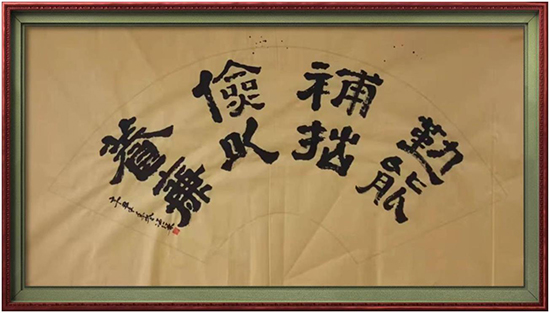 勤能
補拙
儉以
養廉